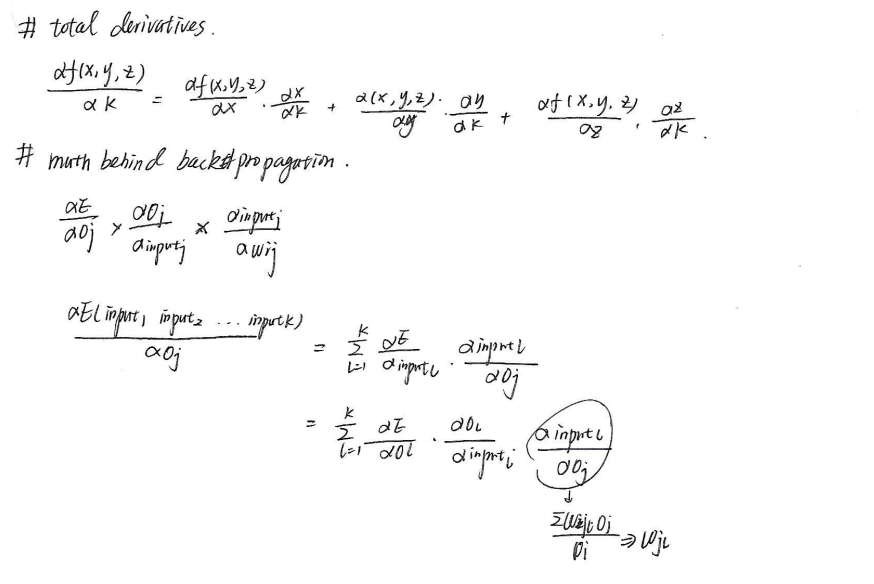 # total derivatives.
αf(x,y,z)/αk = αf(x,y,z)/αx · αx/αk + α(x,y,z)/αy · αy/αk + αf(x,y,z)/αz · αz/αk.
# math behind backpropagation.
αE/αOj × αOj/αinputj × αinputj/αwij
αE(input1 input2 ... inputk)/αOj = Σ_{l=1}^{k} αE/αinputl · αinputl/αOj
= Σ_{l=1}^{k} αE/αOl · αOl/αinputi αinputl/αOj
↓
Σwjl Oj/Oi ⇒ wjl